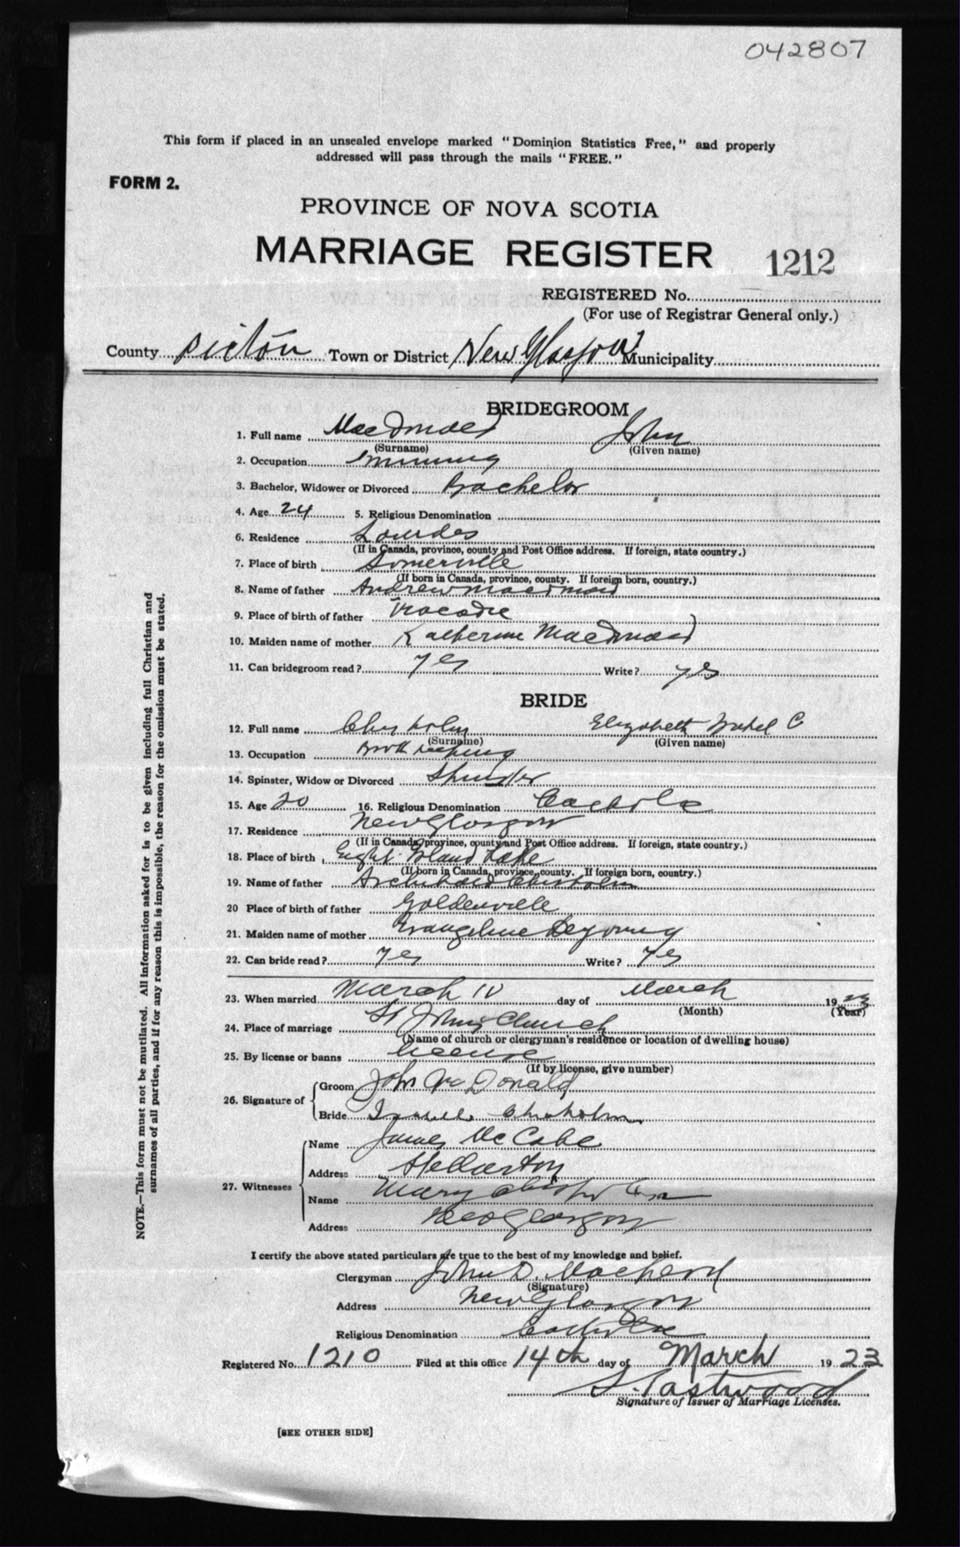 042807
This form if placed in an unsealed envelope marked "Dominion Statistics Free," and properly
addressed will pass through the mails "FREE."
FORM 2.
PROVINCE OF NOVA SCOTIA
MARRIAGE REGISTER 1212
REGISTERED No.
(For use of Registrar General only.)
County Pictou Town or District New Glasgow Municipality
BRIDEGROOM
1. Full name MacDonald John
(Surname) (Given name)
2. Occupation mining
3. Bachelor, Widower or Divorced Bachelor
4. Age 24 5. Religious Denomination
6. Residence Lourdes
(If in Canada, province, county and Post Office address. If foreign, state country.)
7. Place of birth Somerville
(If born in Canada, province, county. If foreign born, country.)
8. Name of father Andrew MacDonald
9. Place of birth of father Tracadie
10. Maiden name of mother Katherine MacDonald
11. Can bridegroom read? yes Write? yes
BRIDE
12. Full name Chisholm Elizabeth Isabel C
(Surname) (Given name)
13. Occupation Book keeping
14. Spinster, Widow or Divorced Spinster
15. Age 20 16. Religious Denomination Catholic
17. Residence New Glasgow
(If in Canada, province, county and Post Office address. If foreign, state country.)
18. Place of birth Eight Island Lake
(If born in Canada, province, county. If foreign born, country.)
19. Name of father Archibald Chisholm
20 Place of birth of father Goldenville
21. Maiden name of mother Evangeline DeYoung
22. Can bride read? yes Write? yes
23. When married March 10 day of March 1923
(Month) (Year)
24. Place of marriage St Johns Church
(Name of church or clergyman's residence or location of dwelling house)
25. By license or banns license
(If by license, give number)
26. Signature of Groom John McDonald
Bride Isabel Chisholm
27. Witnesses Name James McCabe
Address Stellarton
Name Mary
Address New Glasgow
I certify the above stated particulars are true to the best of my knowledge and belief.
Clergyman John D. MacLeod
(Signature)
Address New Glasgow
Religious Denomination Catholic
Registered No. 1210 Filed at this office 14th day of March 1923
S. Eastwood
Signature of Issuer of Marriage Licenses.
[SEE OTHER SIDE]
NOTE.—This form must not be mutilated. All information asked for is to be given including full Christian and
surnames of all parties, and if for any reason this is impossible, the reason for the omission must be stated.